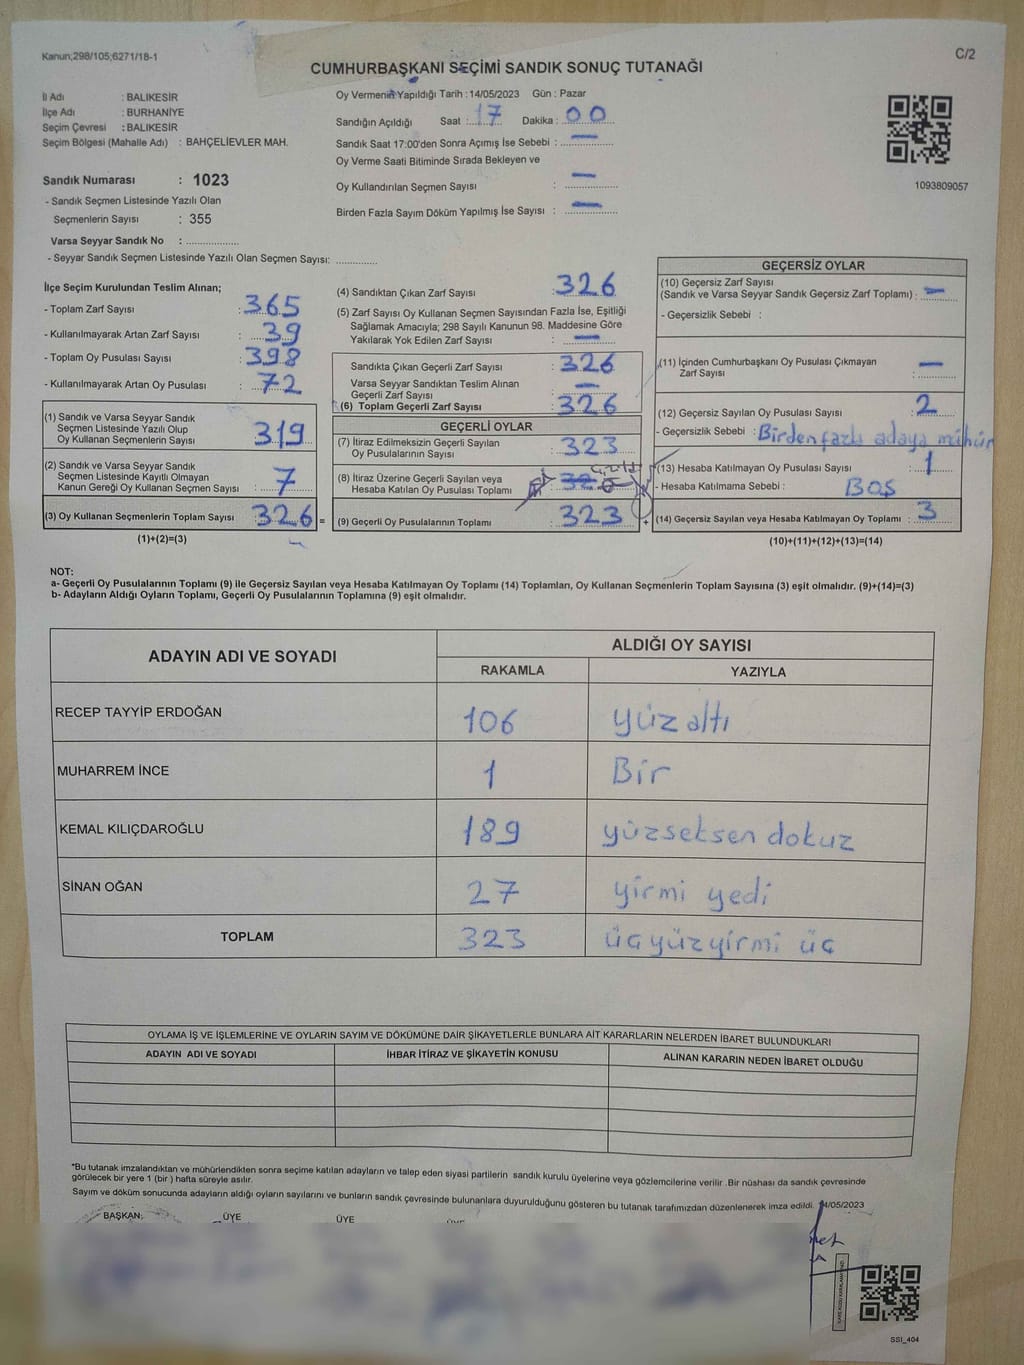 Kanun;298/105;6271/18-1
C/2
CUMHURBAŞKANI SEÇİMİ SANDIK SONUÇ TUTANAĞI
İl Adı : BALIKESİR
İlçe Adı : BURHANİYE
Seçim Çevresi : BALIKESİR
Seçim Bölgesi (Mahalle Adı) : BAHÇELİEVLER MAH.
Sandık Numarası : 1023
- Sandık Seçmen Listesinde Yazılı Olan
Seçmenlerin Sayısı : 355
Varsa Seyyar Sandık No : ..................
- Seyyar Sandık Seçmen Listesinde Yazılı Olan Seçmen Sayısı: ..............
Oy Vermenin Yapıldığı Tarih : 14/05/2023 Gün : Pazar
Sandığın Açıldığı Saat : 17 Dakika : 00
Sandık Saat 17:00'den Sonra Açımış İse Sebebi : —
Oy Verme Saati Bitiminde Sırada Bekleyen ve
Oy Kullandırılan Seçmen Sayısı : —
Birden Fazla Sayım Döküm Yapılmış İse Sayısı : —
1093809057
İlçe Seçim Kurulundan Teslim Alınan;
- Toplam Zarf Sayısı : 365
- Kullanılmayarak Artan Zarf Sayısı : 39
- Toplam Oy Pusulası Sayısı : 398
- Kullanılmayarak Artan Oy Pusulası : 72
(1) Sandık ve Varsa Seyyar Sandık
Seçmen Listesinde Yazılı Olup
Oy Kullanan Seçmenlerin Sayısı : 319
(2) Sandık ve Varsa Seyyar Sandık
Seçmen Listesinde Kayıtlı Olmayan
Kanun Gereği Oy Kullanan Seçmen Sayısı : 7
(3) Oy Kullanan Seçmenlerin Toplam Sayısı : 326 =
(1)+(2)=(3)
(4) Sandıktan Çıkan Zarf Sayısı : 326
(5) Zarf Sayısı Oy Kullanan Seçmen Sayısından Fazla İse, Eşitliği
Sağlamak Amacıyla; 298 Sayılı Kanunun 98. Maddesine Göre
Yakılarak Yok Edilen Zarf Sayısı : —
Sandıkta Çıkan Geçerli Zarf Sayısı : 326
Varsa Seyyar Sandıktan Teslim Alınan
Geçerli Zarf Sayısı : —
(6) Toplam Geçerli Zarf Sayısı : 326
GEÇERLİ OYLAR
(7) İtiraz Edilmeksizin Geçerli Sayılan
Oy Pusulalarının Sayısı : 323
(8) İtiraz Üzerine Geçerli Sayılan veya
Hesaba Katılan Oy Pusulası Toplamı :
(9) Geçerli Oy Pusulalarının Toplamı : 323 +
GEÇERSİZ OYLAR
(10) Geçersiz Zarf Sayısı
(Sandık ve Varsa Seyyar Sandık Geçersiz Zarf Toplamı) : —
- Geçersizlik Sebebi :
(11) İçinden Cumhurbaşkanı Oy Pusulası Çıkmayan
Zarf Sayısı : —
(12) Geçersiz Sayılan Oy Pusulası Sayısı : 2
- Geçersizlik Sebebi : Birden fazla adaya mühür
(13) Hesaba Katılmayan Oy Pusulası Sayısı : 1
- Hesaba Katılmama Sebebi : BOŞ
(14) Geçersiz Sayılan veya Hesaba Katılmayan Oy Toplamı : 3
(10)+(11)+(12)+(13)=(14)
NOT:
a- Geçerli Oy Pusulalarının Toplamı (9) ile Geçersiz Sayılan veya Hesaba Katılmayan Oy Toplamı (14) Toplamları, Oy Kullanan Seçmenlerin Toplam Sayısına (3) eşit olmalıdır. (9)+(14)=(3)
b- Adayların Aldığı Oyların Toplamı, Geçerli Oy Pusulalarının Toplamına (9) eşit olmalıdır.
ADAYIN ADI VE SOYADI
ALDIĞI OY SAYISI
RAKAMLA YAZIYLA
RECEP TAYYİP ERDOĞAN 106 yüz altı
MUHARREM İNCE 1 Bir
KEMAL KILIÇDAROĞLU 189 yüzseksen dokuz
SİNAN OĞAN 27 yirmi yedi
TOPLAM 323 üçyüzyirmi üç
OYLAMA İŞ VE İŞLEMLERİNE VE OYLARIN SAYIM VE DÖKÜMÜNE DAİR ŞİKAYETLERLE BUNLARA AİT KARARLARIN NELERDEN İBARET BULUNDUKLARI
ADAYIN ADI VE SOYADI İHBAR İTİRAZ VE ŞİKAYETİN KONUSU ALINAN KARARIN NEDEN İBARET OLDUĞU
*Bu tutanak imzalandıktan ve mühürlendikten sonra seçime katılan adayların ve talep eden siyasi partilerin sandık kurulu üyelerine veya gözlemcilerine verilir .Bir nüshası da sandık çevresinde
görülecek bir yere 1 (bir ) hafta süreyle asılır.
Sayım ve döküm sonucunda adayların aldığı oyların sayılarını ve bunların sandık çevresinde bulunanlara duyurulduğunu gösteren bu tutanak tarafımızdan düzenlenerek imza edildi. 14/05/2023
BAŞKAN; ÜYE ÜYE
SSI_404